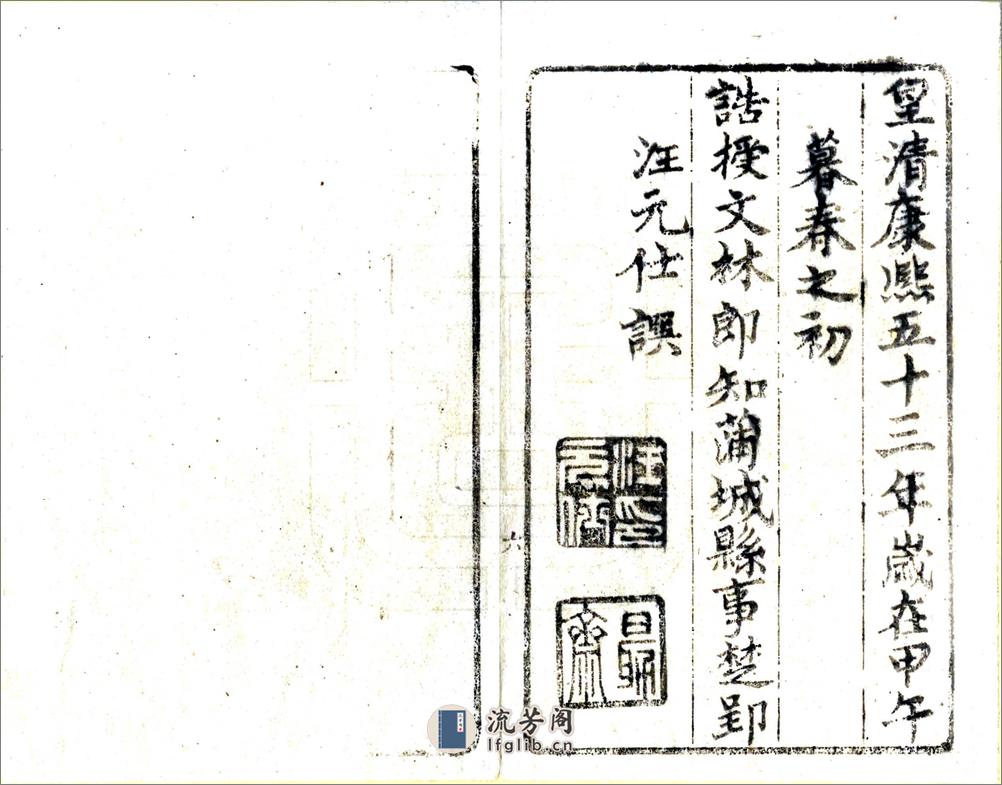 皇清康熙五十三年歲在甲午
暮春之初
誥授文林郎知蒲城縣事楚郢
汪元仕譔
汪印元仕
齋
六
流芳阁
lfglib.cn